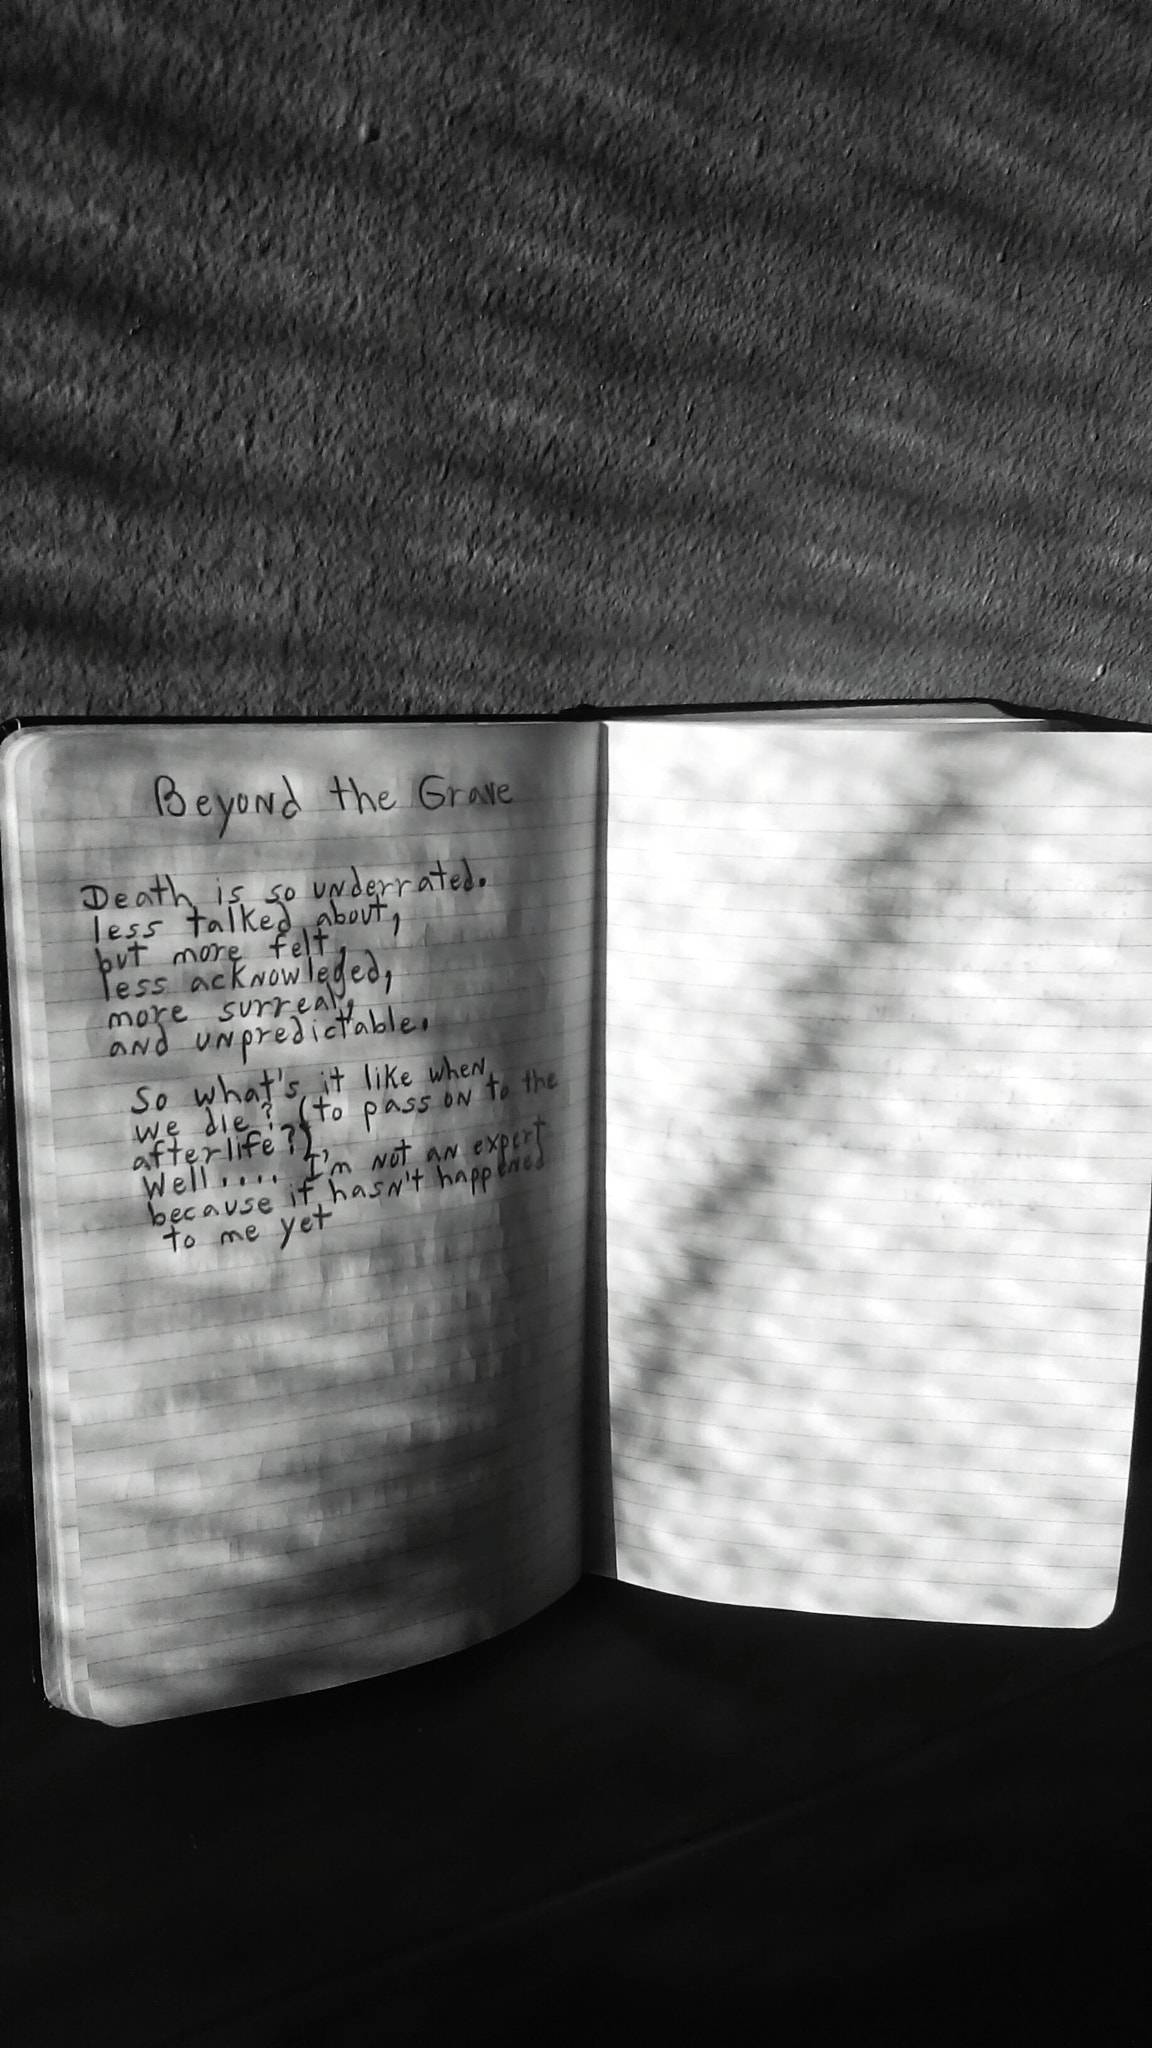 Beyond the Grave
Death is so underrated.
less talked about,
but more felt,
less acknowleged,
more surreal,
and unpredictable.
So what's it like when
we die? (to pass on to the
afterlife?)
Well.... I'm not an expert
because it hasn't happened
to me yet